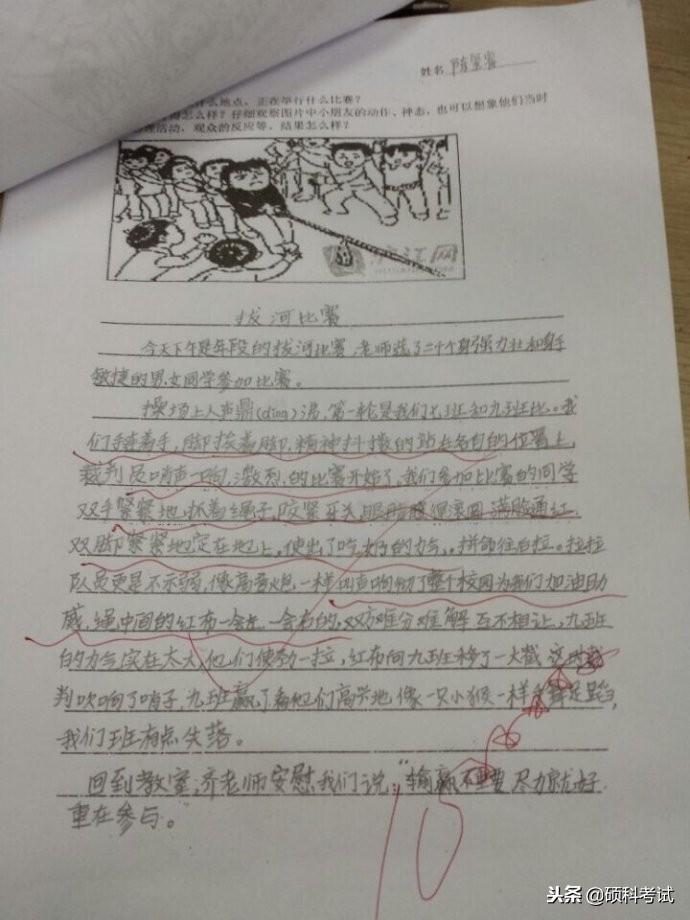 姓名
什么地点，正在举行什么比赛？
得怎么样？仔细观察图片中小朋友的动作、神态，也可以想象他们当时
理活动，观众的反应等。结果怎么样？
沪江网
拔河比赛
今天下午是年段的拔河比赛，老师选了二十个身强力壮和身手
敏捷的男女同学参加比赛。
操场上人声鼎(dǐng)沸，第一轮是我们七班和九班比。我
们手挨着手，脚挨着脚，精神抖擞的站在各自的位置上，
裁判员哨声一响，激烈的比赛开始了，我们参加比赛的同学
双手紧紧地抓着绳子，咬紧牙关，眼睛瞪得滚圆，满脸通红，
双脚紧紧地定在地上，使出了吃奶的力气，拼命往后拉。拉拉
队员更是不示弱，像高音炮一样叫声响彻了整个校园为我们加油助
威，绳中间的红布一会左一会右的，双方难分难解互不相让，九班
的力气实在太大，他们使劲一拉，红布向九班移了一大截
判吹响了哨子，九班赢了看他们高兴地像一只小猴一样手舞足蹈，
我们班有点失落。
回到教室，齐老师安慰我们说：“输赢不重要尽力就好
重在参与。”
10
头条 @硕科考试